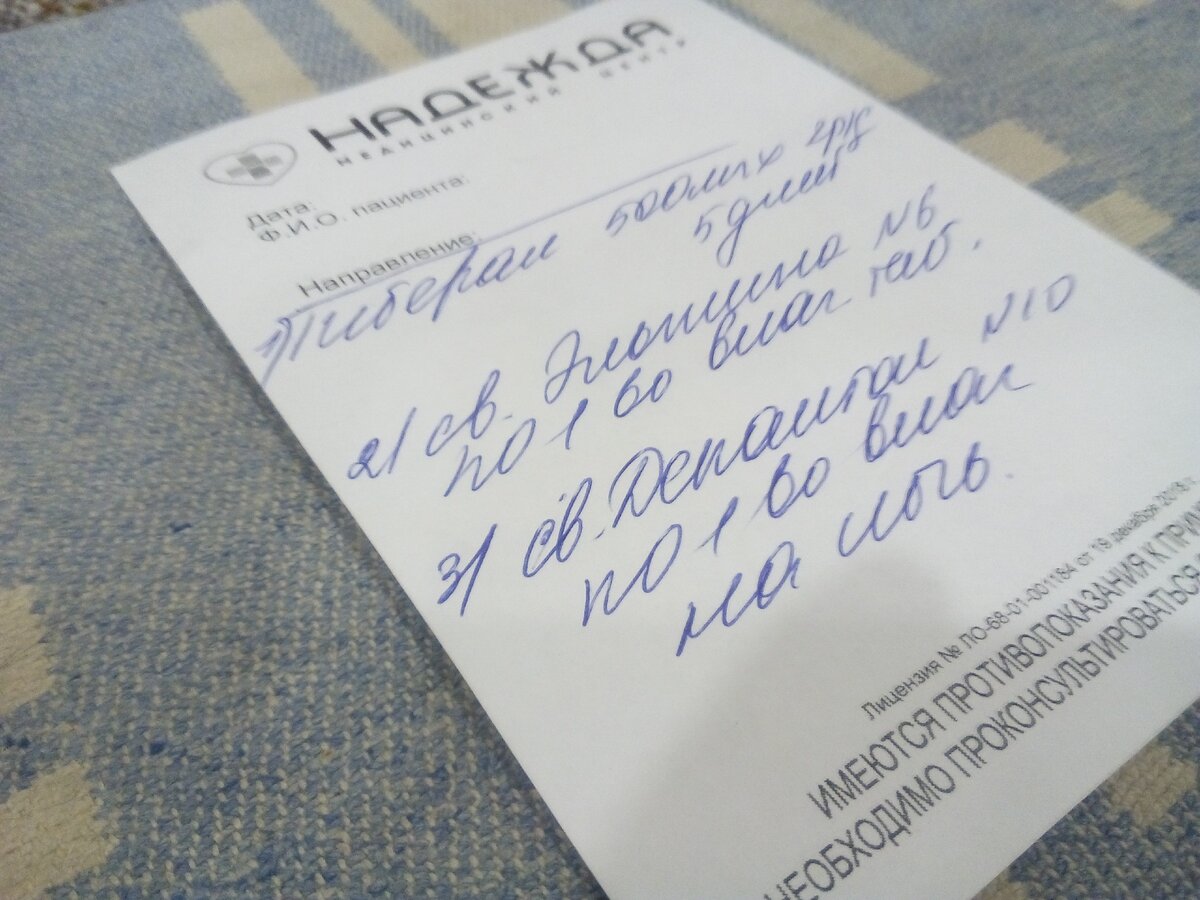 НАДЕЖДА
МЕДИЦИНСКИЙ ЦЕНТР
Дата:
Ф.И.О. пациента:
Направление:
1) Тиберал 500мг х 2р/д
5 дней
2) св. Эльжина N6
по 1 во влаг таб.
3) св. Депантол N10
по 1 во влаг
на ночь.
Лицензия № ЛО-68-01-001184 от 19 декабря 2018 г.
ИМЕЮТСЯ ПРОТИВОПОКАЗАНИЯ К ПРИМ
НЕОБХОДИМО ПРОКОНСУЛЬТИРОВАТЬСЯ